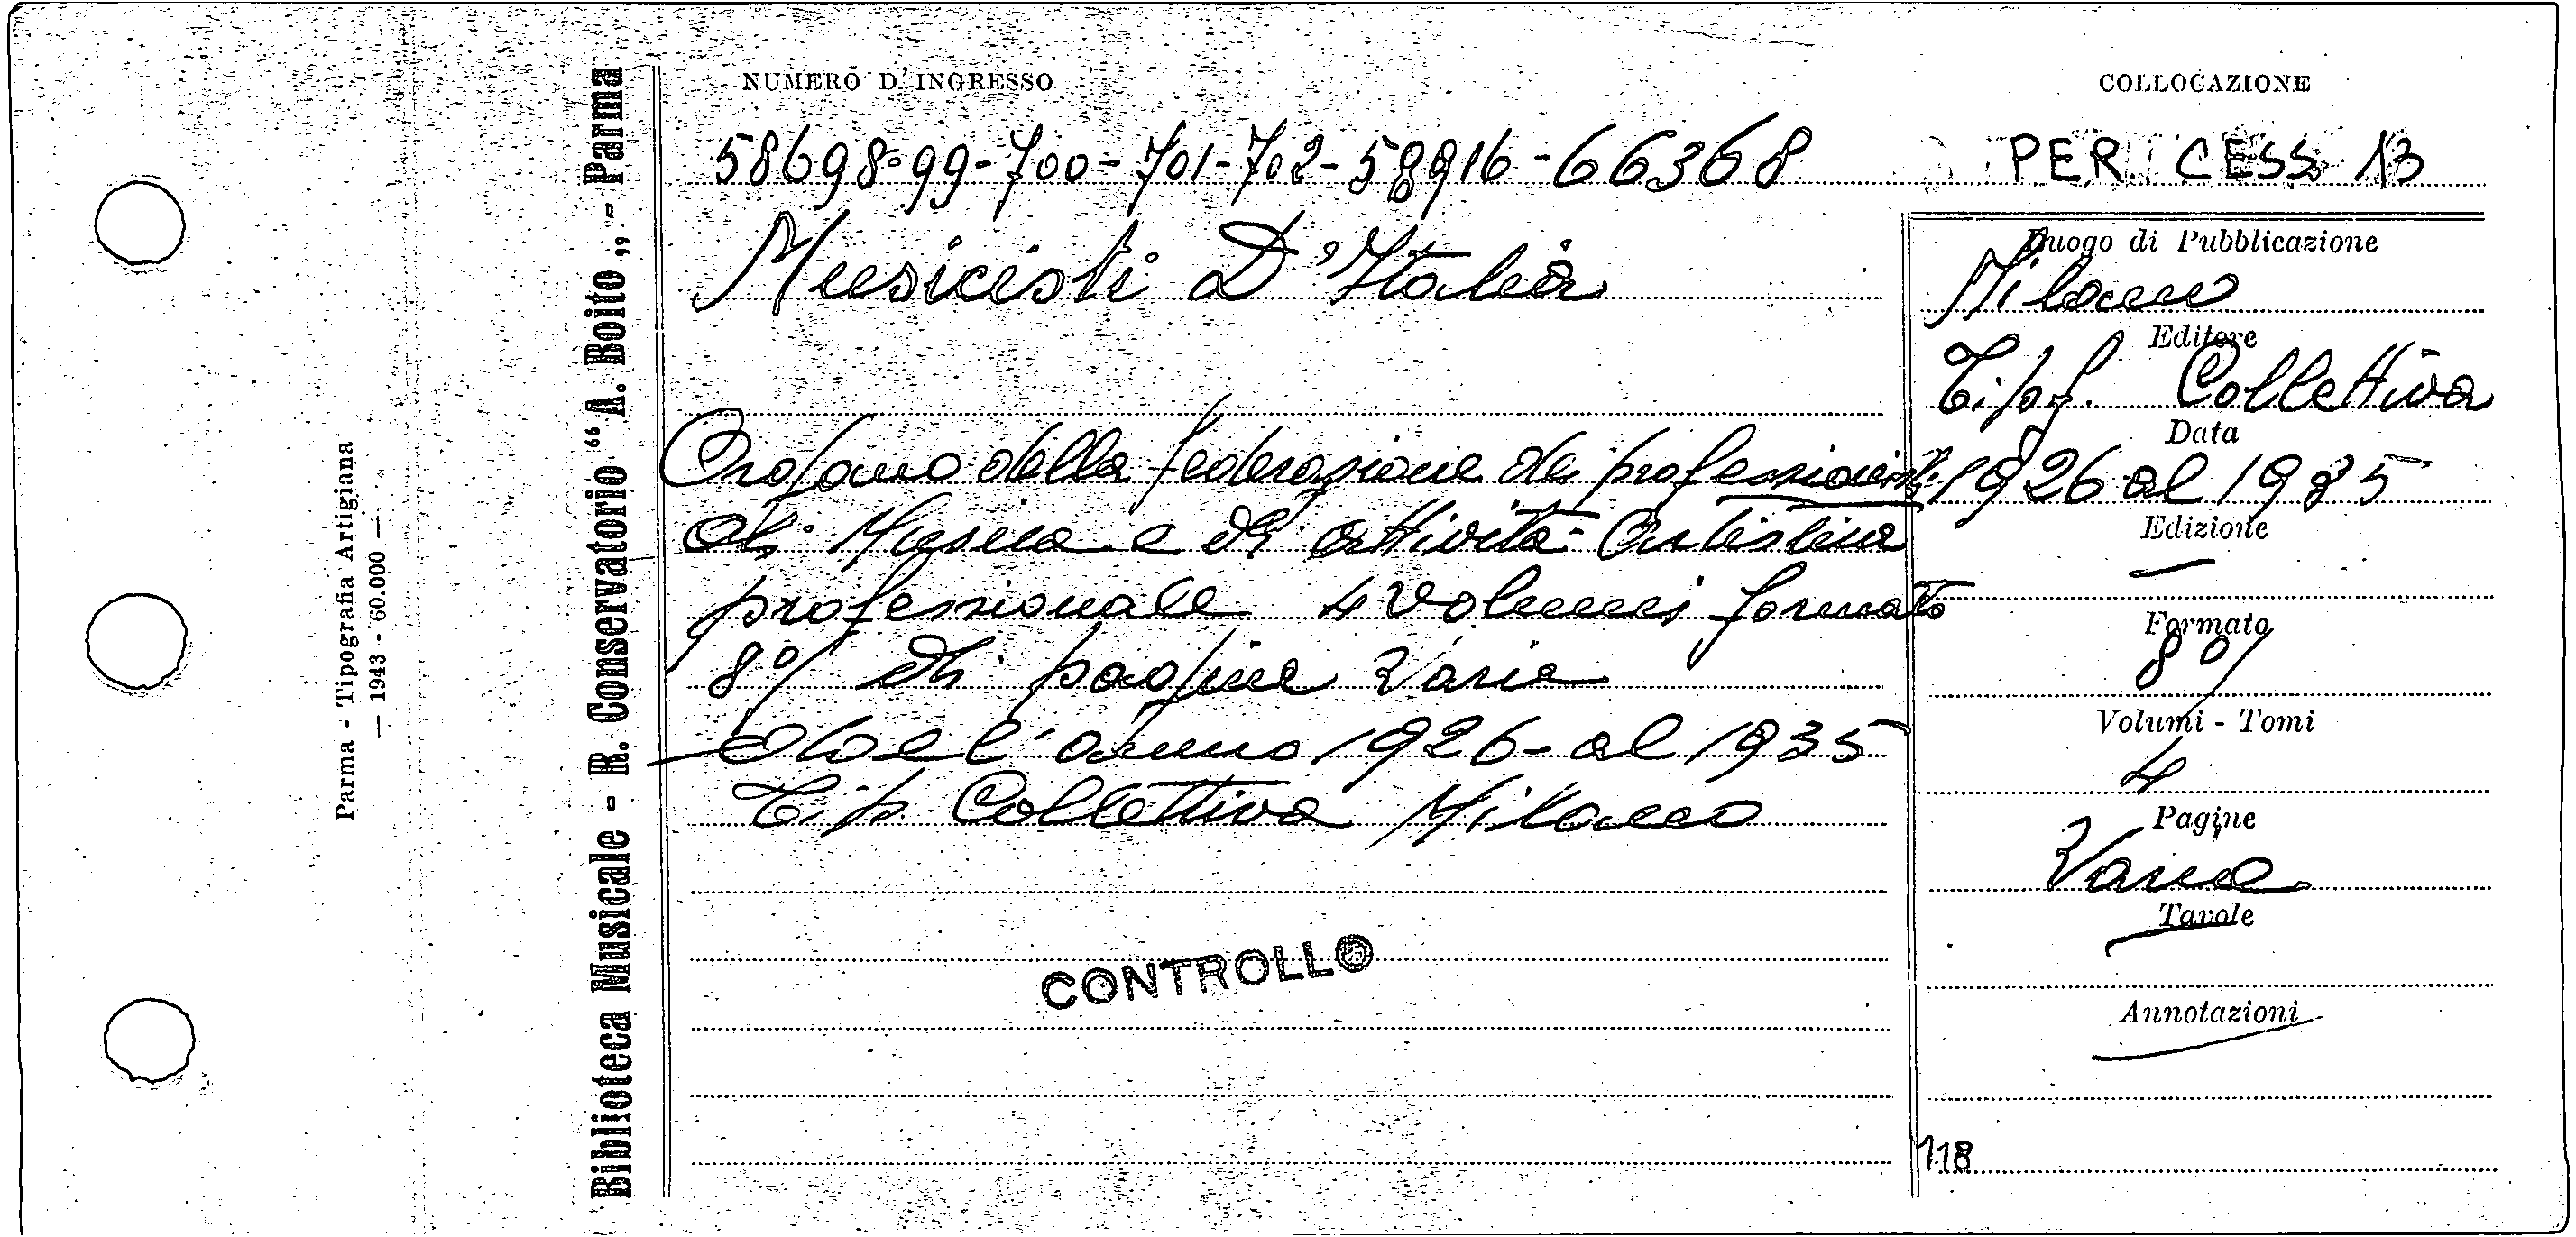 NUMERO D'INGRESSO
COLLOCAZIONE
58698-99-700-701-702-58916-66368
PER CESS 13
Musicisti D'Italia
Organo della federazione dei professionisti
di Musica e di attività Artistica
professionale 4 volumi formato
8°/ di pagine varie
dall'anno 1926 al 1935
Tip Collettiva Milano
CONTROLLO
Luogo di Pubblicazione
Milano
Editore
Tipog. Collettiva
Data
1926 al 1935
Edizione
—
Formato
8°/
Volumi - Tomi
4
Pagine
Varie
Tavole
Annotazioni
118
Biblioteca Musicale - R. Conservatorio “A. Boito„ - Parma
Parma - Tipografia Artigiana
— 1943 - 60.000 —